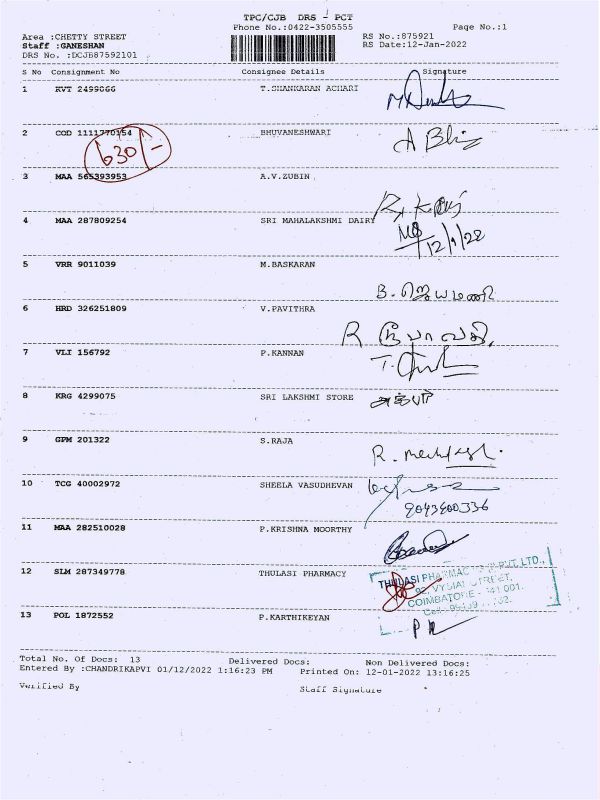 TPC/CJB DRS - PCT
Phone No.:0422-3505555 Page No.:1
Area :CHETTY STREET RS No.:875921
Staff :GANESHAN RS Date:12-Jan-2022
DRS No. :DCJB87592101
S No Consignment No Consignee Details Signature
1 KVT 2499066 T.SHANKARAN ACHARI
2 COD 1111770154 BHUVANESHWARI
630/-
3 MAA 565393953 A.V.ZUBIN
4 MAA 287809254 SRI MAHALAKSHMI DAIRY
12/1/22
5 VRR 9011039 M.BASKARAN
B. ஜெயமணி
6 HRD 326251809 V.PAVITHRA
7 VLI 156792 P.KANNAN
8 KRG 4299075 SRI LAKSHMI STORE
9 GPM 201322 S.RAJA
10 TCG 40002972 SHEELA VASUDHEVAN
11 MAA 282510028 P.KRISHNA MOORTHY
12 SLM 287349778 THULASI PHARMACY
COIMBATORE
13 POL 1872552 P.KARTHIKEYAN
Total No. Of Docs: 13 Delivered Docs: Non Delivered Docs:
Entered By :CHANDRIKAPVI 01/12/2022 1:16:23 PM Printed On: 12-01-2022 13:16:25
Verified By Staff Signature